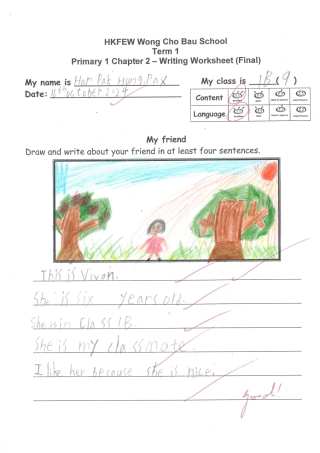 HKFEW Wong Cho Bau School
Term 1
Primary 1 Chapter 2 – Writing Worksheet (Final)
My name is Har Pak Hung Pax My class is 1B (9)
Date: 16th October 2024
Content
Language
My friend
Draw and write about your friend in at least four sentences.
This is Vivan.
She is six years old.
She is in Class 1B.
She is my classmate.
I like her because she is nice.
good!